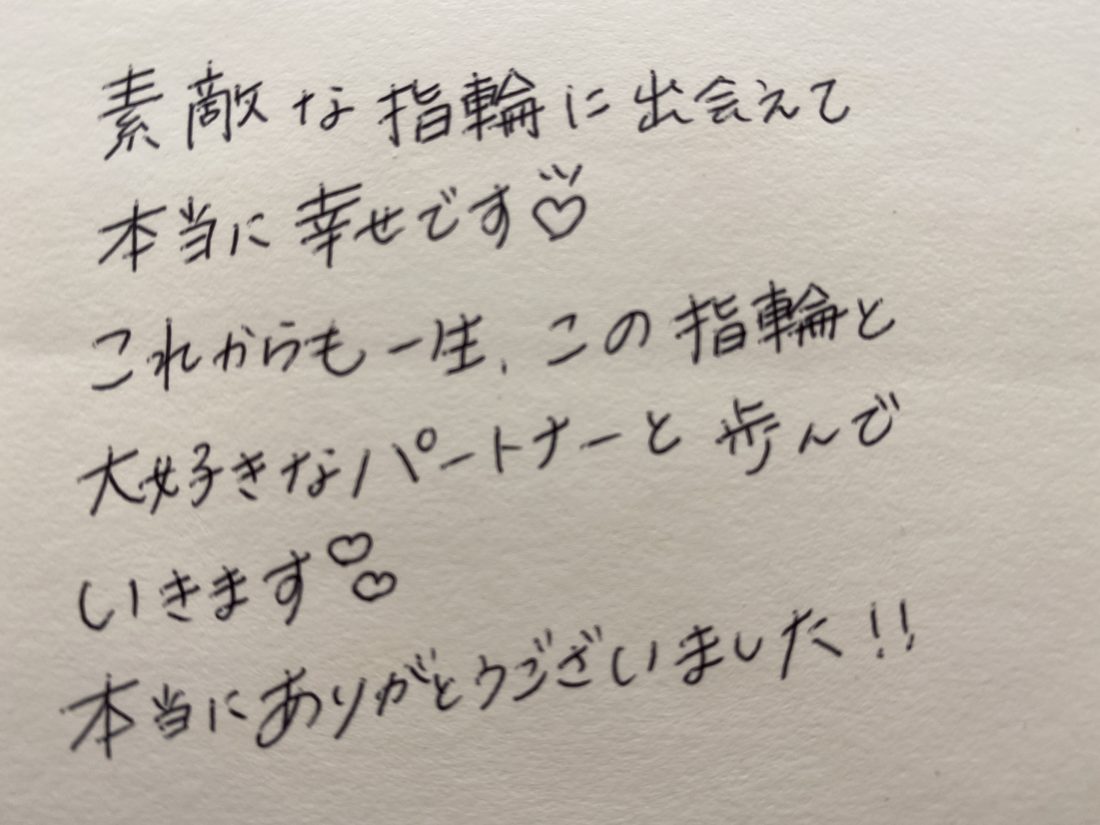 素敵な指輪に出会えて
本当に幸せです♡
これからも一生、この指輪と
大好きなパートナーと歩んで
いきます♡♡
本当にありがとうございました!!